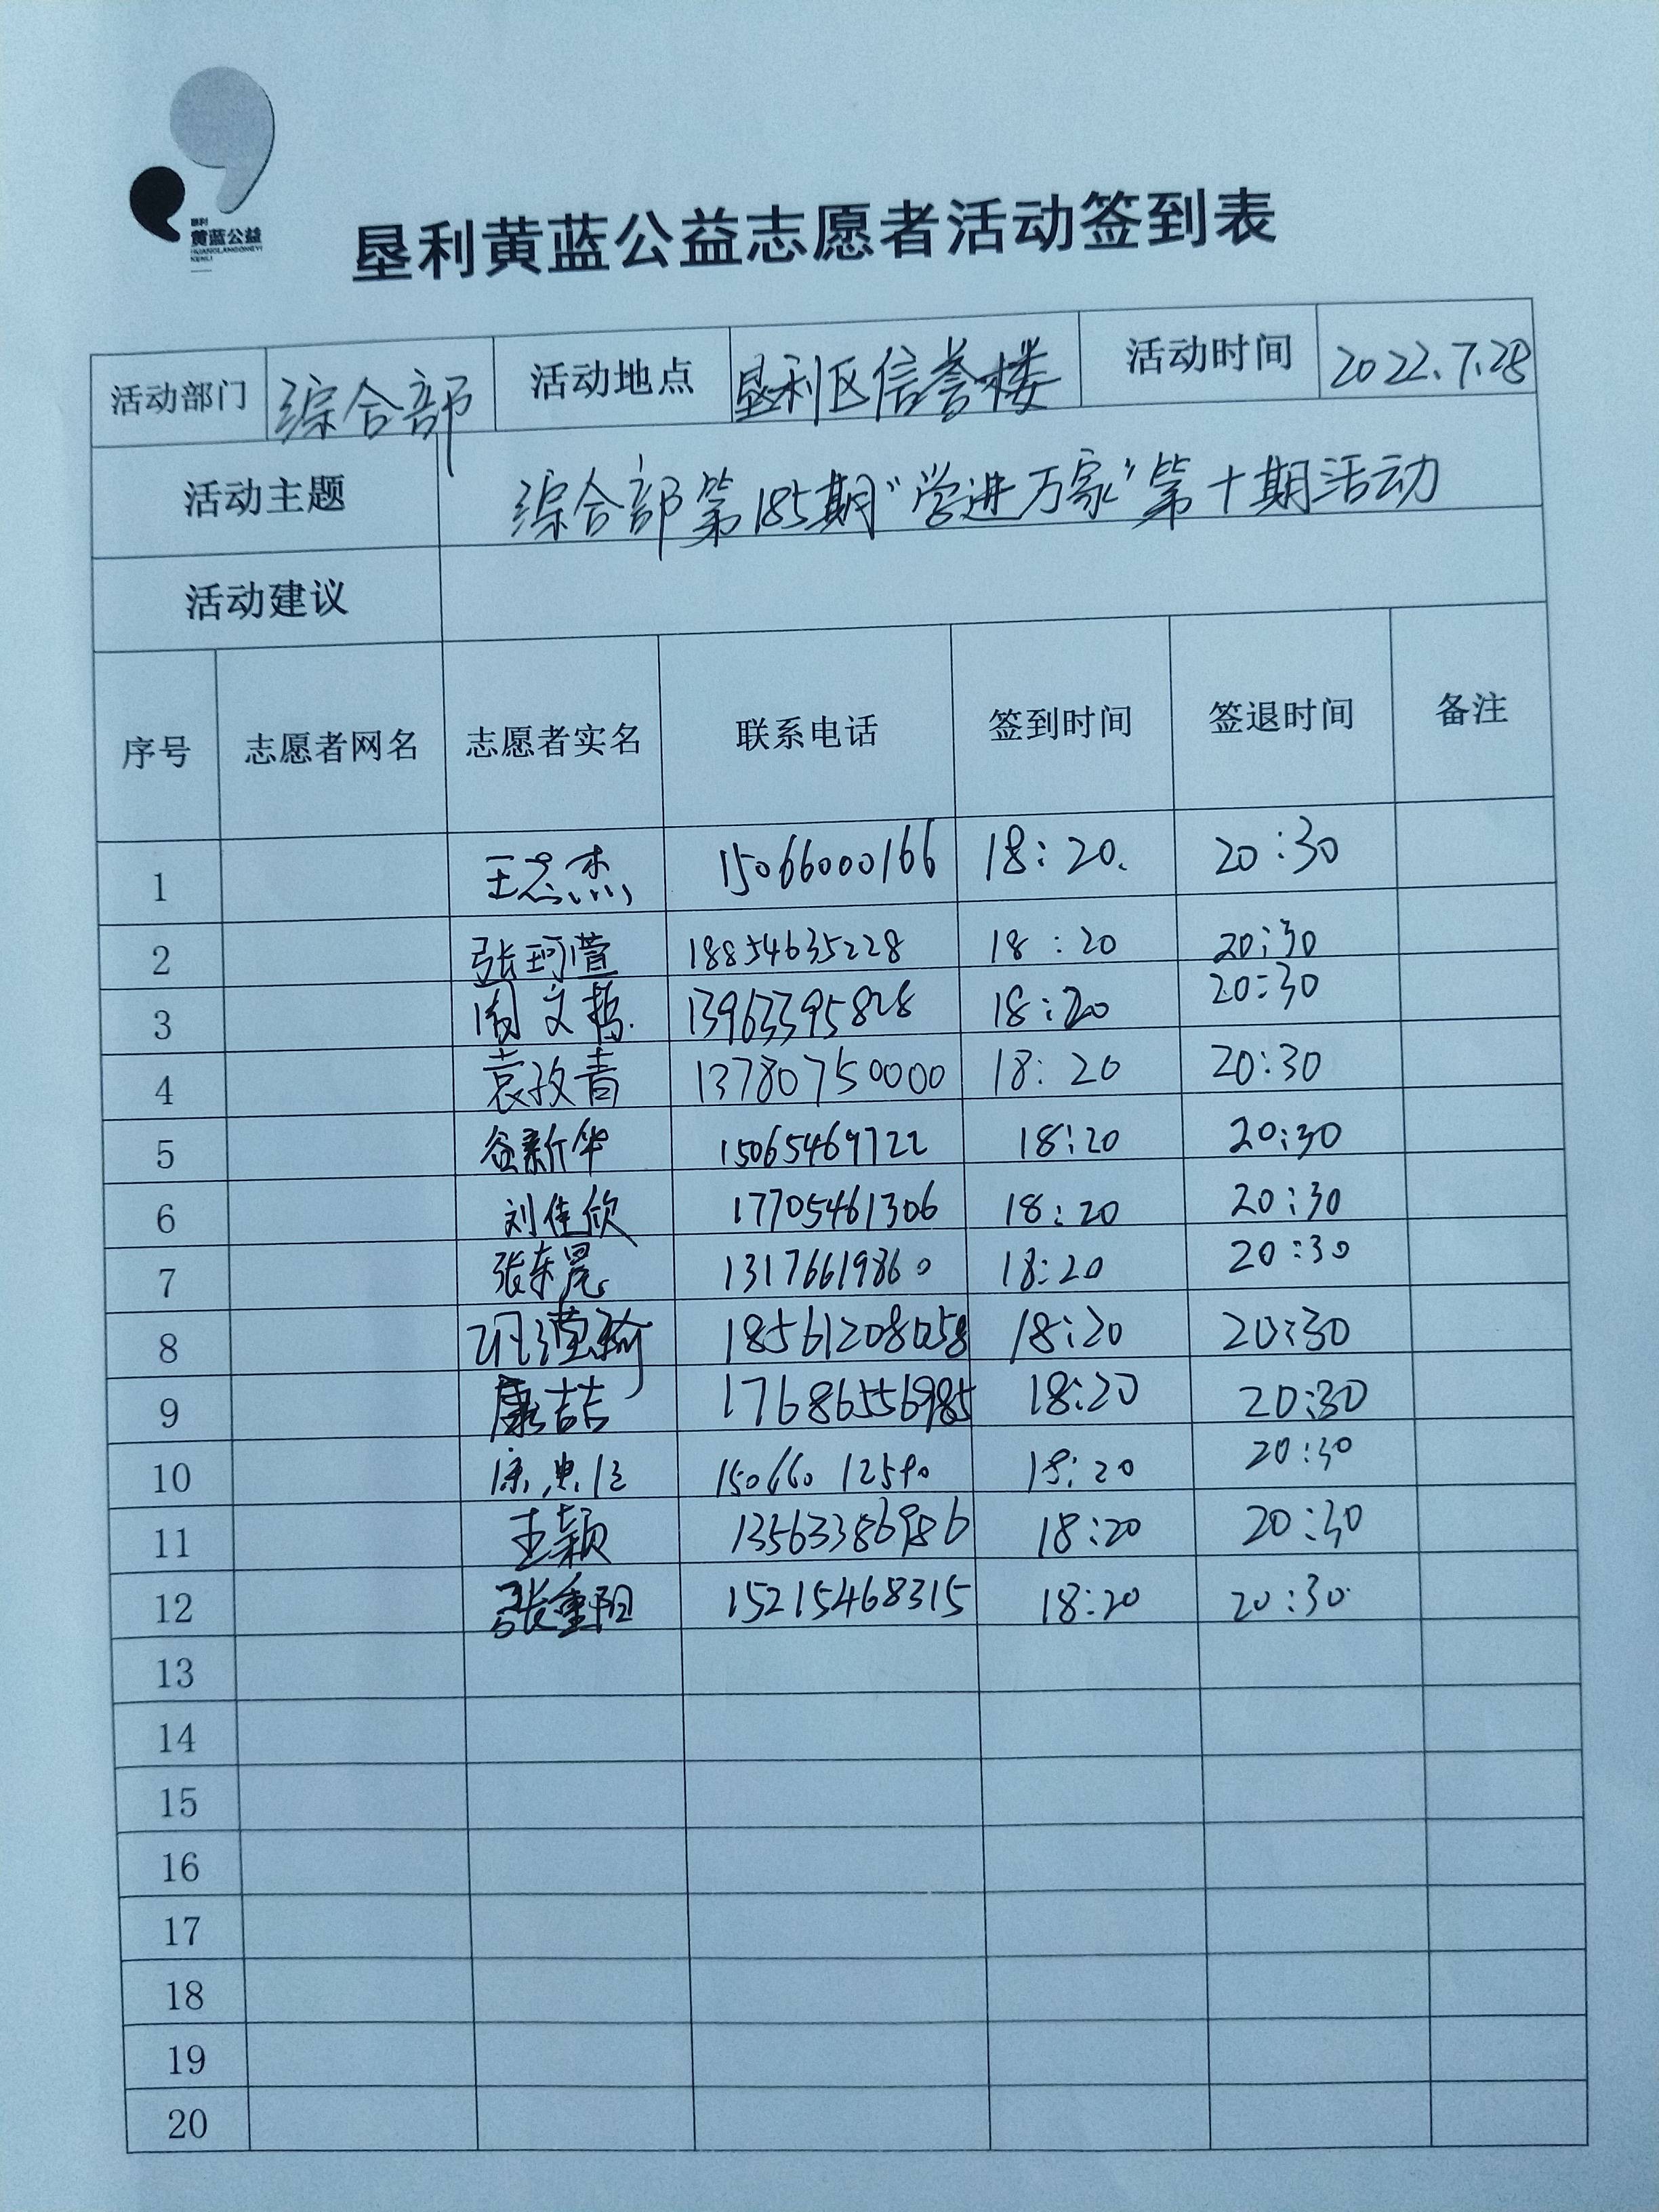 垦利
黄蓝公益
HUANGLANGONGYI
KENLI
垦利黄蓝公益志愿者活动签到表
活动部门 综合部 活动地点 垦利区信誉楼 活动时间 2022.7.28
活动主题 综合部第185期“学进万家”第十期活动
活动建议
序号 志愿者网名 志愿者实名 联系电话 签到时间 签退时间 备注
1 王志杰 15066000166 18:20. 20:30
2 张珂萱 18854635228 18:20 20:30
3 周文哲. 13963395828 18:20 20:30
4 袁孜青 13780750000 18:20 20:30
5 谷新华 15065469722 18:20 20:30
6 刘佳欣 17705461306 18:20 20:30
7 张东晨 13176619860 18:20 20:30
8 18561208058 18:20 20:30
9 康喆 17686556985 18:20 20:30
10 15066012590 18:20 20:30
11 王颖 13563386986 18:20 20:30
12 张重阳 15215468315 18:20 20:30
13
14
15
16
17
18
19
20